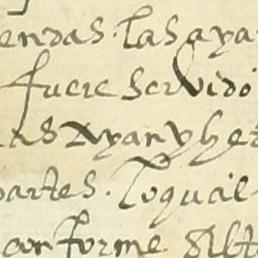 endas. las aya
fuere servido
las ayan y he
partes. Lo qual
conforme al